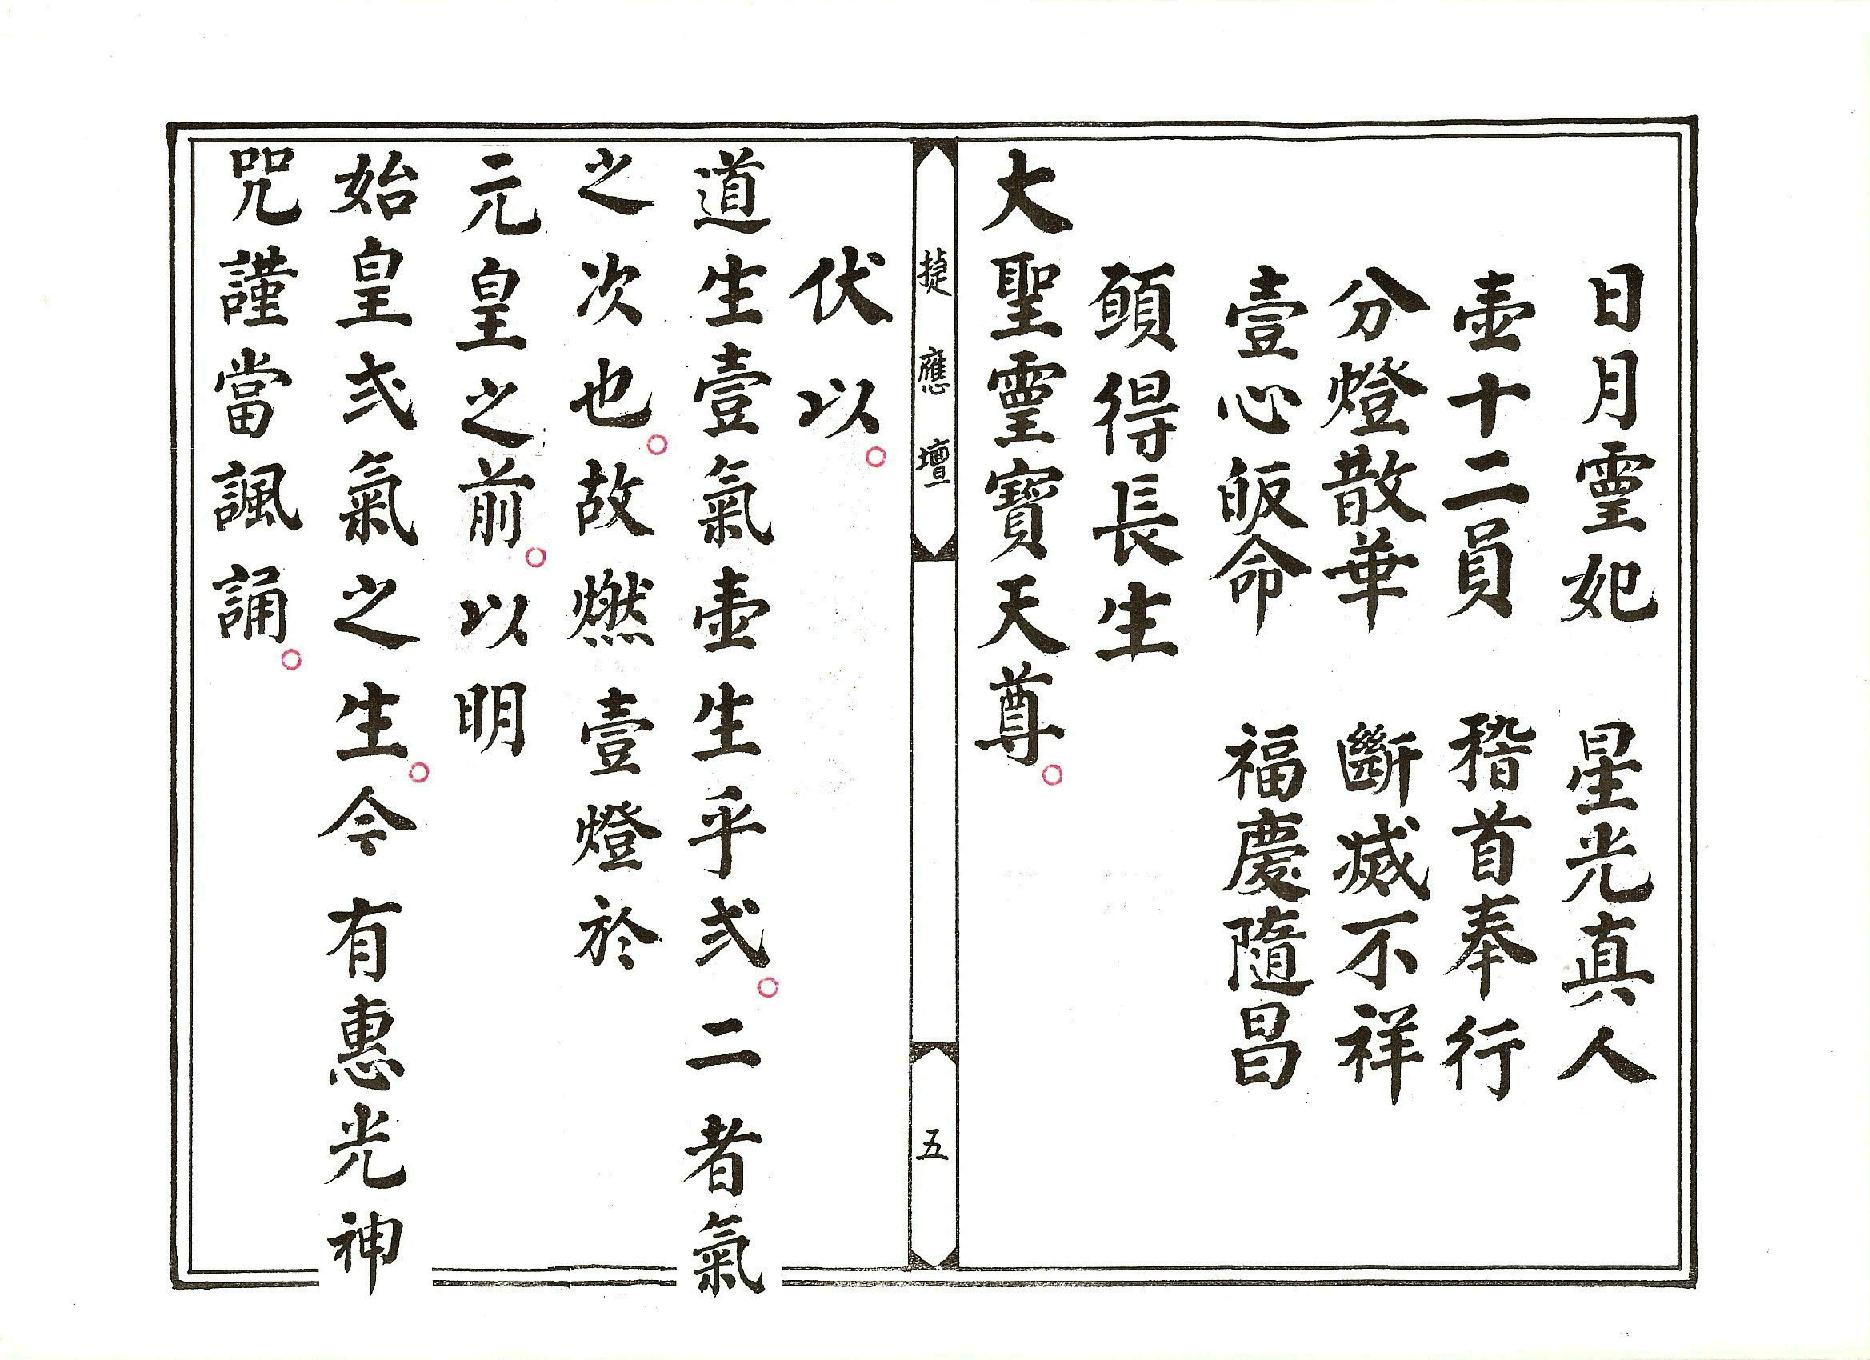 日月霊妃　星光真人
壷十二員　稽首奉行
分燈散華　斷滅不祥
壹心皈命　福慶隨昌
願得長生
大聖霊寶天尊。
㨗應壇　五
伏以。
道生壹氣壷生乎弍。二者氣
之次也。故燃壹燈於
元皇之前。以明
始皇弍氣之生。今有惠光神
咒謹當諷誦。